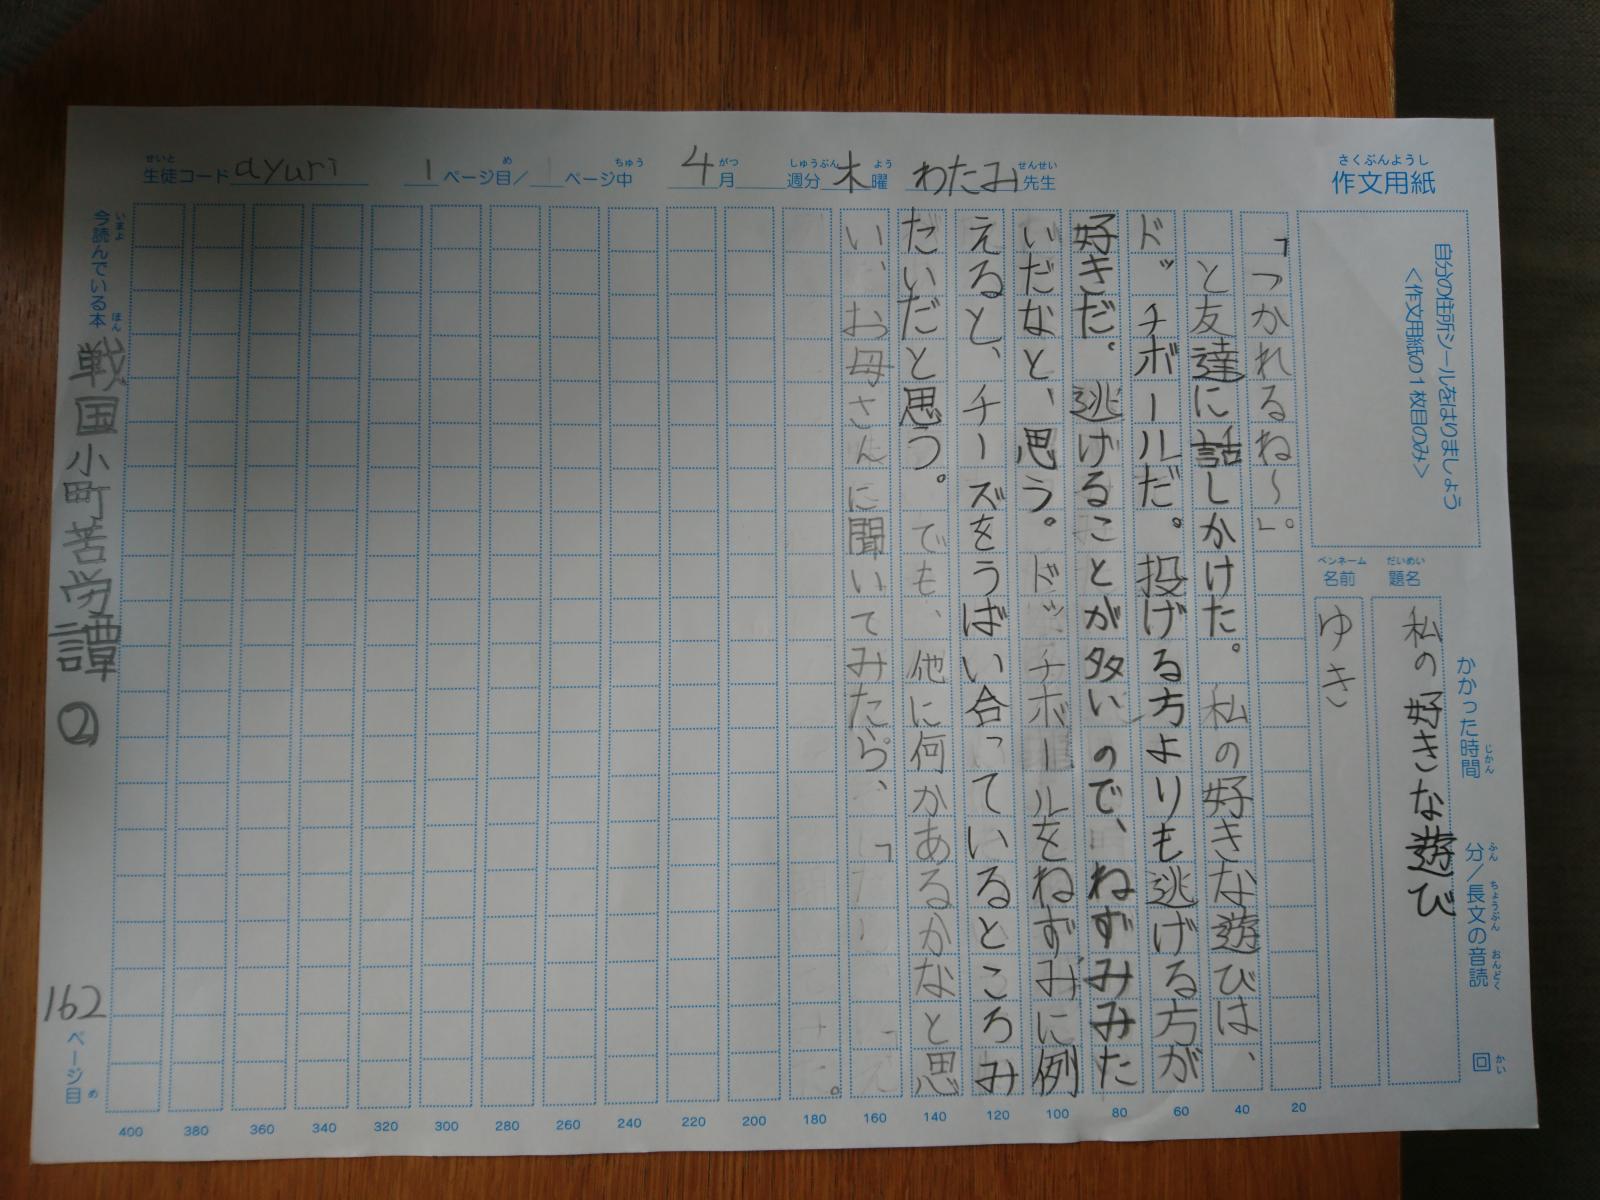 作文用紙
さくぶんようし
生徒コード ayuri 1ページ目/ページ中 4月 週分 木曜 わたみ先生
せいと め ちゅう がつ しゅうぶん よう せんせい
自分の住所シールをはりましょう
<作文用紙の1枚目のみ>
かかった時間 分/長文の音読 回
じかん ふん ちょうぶん おんどく かい
題名 私の好きな遊び
だいめい
名前 ゆき
ペンネーム
「つかれるね〜」。
と友達に話しかけた。私の好きな遊びは、
ドッチボールだ。投げる方よりも逃げる方が
好きだ。逃げることが多いので、ねずみみた
いだなと、思う。ドッチボールをねずみに例
えると、チーズをうばい合っているところみ
たいだと思う。でも、他に何かあるかなと思
い、お母さんに聞いてみたら、「
。
20
40
60
80
100
120
140
160
180
200
220
240
260
280
300
320
340
360
380
400
今読んでいる本 戦国小町苦労譚② 162ページ目
いまよ ほん め